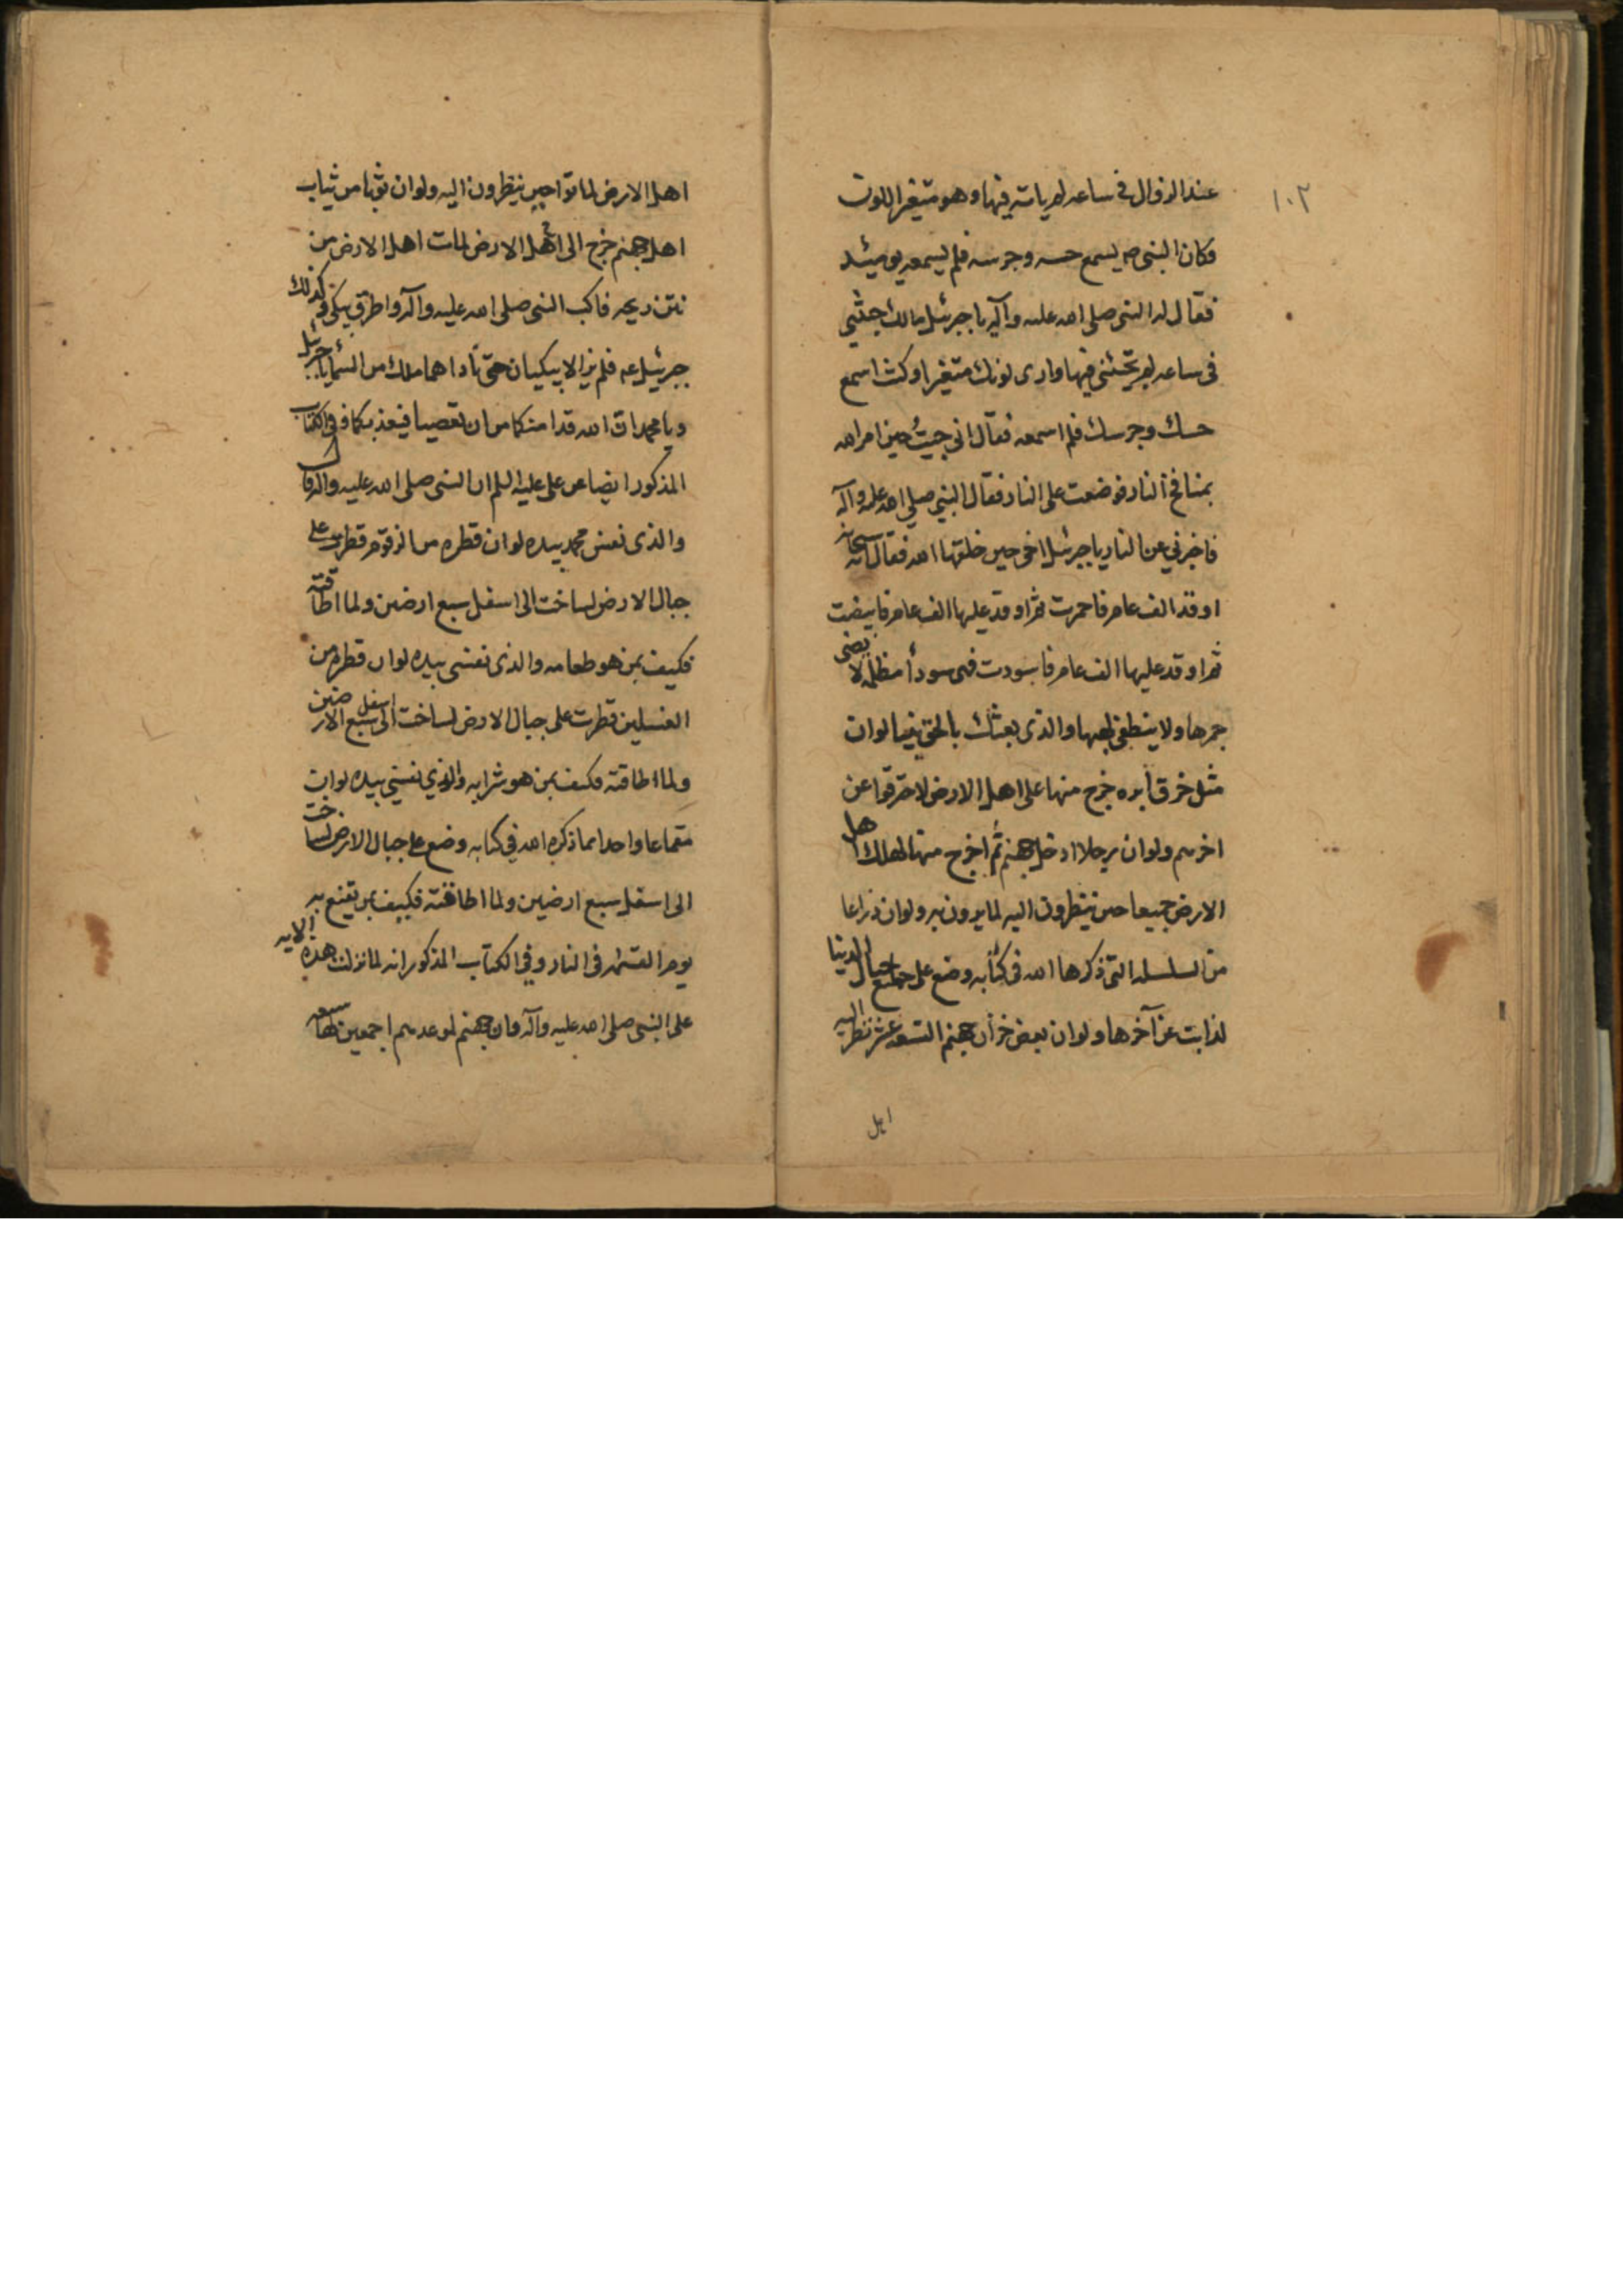 ١٠٢
عند الزوال فى ساعه لم ياته فيها وهو متغير اللون
فكان النبى ص يسمع حسه وجرسه فلم يسمعه يومئذ
فقال له النبى صلى الله عليه وآله يا جبرئيل مالك جئتني
فى ساعه لم تجئنى فيها وارى لونك متغيرا وكنت اسمع
حسك وجرسك فلم اسمعه فقال انى جيت حين امر الله
بمنافخ النار فوضعت على النار فقال النبي صلى الله عليه وآله
فاخبرني عن النار يا جبرئيل اخى حين خلقها الله فقال انه سبحانه
اوقد الف عام فاحمرت ثم اوقد عليها الف عام فابيضت
ثم اوقد عليها الف عام فاسودت فهى سودأ مظلمة لا يضى
جمرها ولا ينطفى لهبها والذى بعثك بالحق نبيا لو ان
مثل خرق ابره خرج منها على اهل الارض لاحترقوا عن
اخرهم ولو ان رجلا ادخل جهنم ثم اخرج منها لهلك اهل
الارض جميعا حين ينظرون اليه لما يرون به ولو ان ذراعا
من السلسله التى ذكرها الله فى كتابه وضع على جميع جبال الدنيا
لذابت عن آخرها ولو ان بعض خزان جهنم التسعه عشر نظر اليه
اهل
اهل الارض لماتوا حين ينظرون اليه ولو ان ثوبا من ثياب
اهل جهنم خرج الى اهل الارض لمات اهل الارض من
نتن ريحه فاكب النبى صلى الله عليه وآله واطرق يبكى وكذلك
جبرئيل عم فلم يزالا يبكيان حتى ناداهما ملك من السمأ يا جبرئيل
ويا محمد ان الله قد امنكما من ان تعصيا فيعذبكما وفى الكتاب
المذكور ايضا عن على عليه السلم ان النبى صلى الله عليه وآله قال
والذى نفس محمد بيده لو ان قطره من الزقوم قطرت على
جبال الارض لساخت الى اسفل سبع ارضين ولما اطاقته
فكيف بمن هو طعامه والذى نفسى بيده لو ان قطره من
الغسلين قطرت على جبال الارض لساخت الى اسفل سبع الارضين
ولما اطاقته فكيف بمن هو شرابه والذي نفسي بيده لو ان
مقماعا واحدا مما ذكره الله في كتابه وضع على جبال الارض لساخت
الى اسفل سبع ارضين ولما اطاقته فكيف بمن يقنع به
يوم القيمه فى النار وفى الكتاب المذكور انه لما نزلت هذه الايه
على النبى صلى الله عليه وآله وان جهنم لموعدهم اجمعين لها سبعه